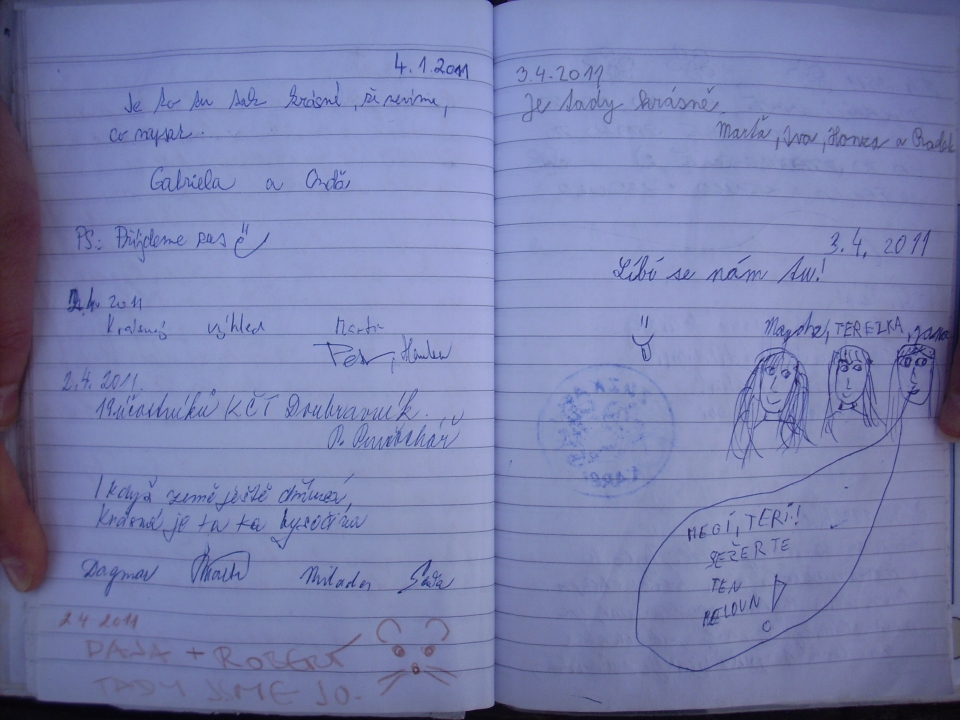 4.1.2011
Je to tu tak krásné, že nevíme,
co napsat.
Gabriela a Ondě
PS: Přijdeme zas
2011
Krásnej výhled Martin
Petr, Hanka
2.4.2011.
19 účastníků KČT Doubravník.
P.
I když země ještě dřímá,
Krásná je ta ta Vysočina
Dagmar Milada
2 4 2011
DAJA + ROBERT
TADY JSME JO.
3.4.2011
Je tady krásně
Marťa, Iva, Honza a Radek
3.4. 2011
Líbí se nám tu!
TEREZKA, Jana
MEGÍ, TERÍ!
SEŽERTE
TEN
MELOUN